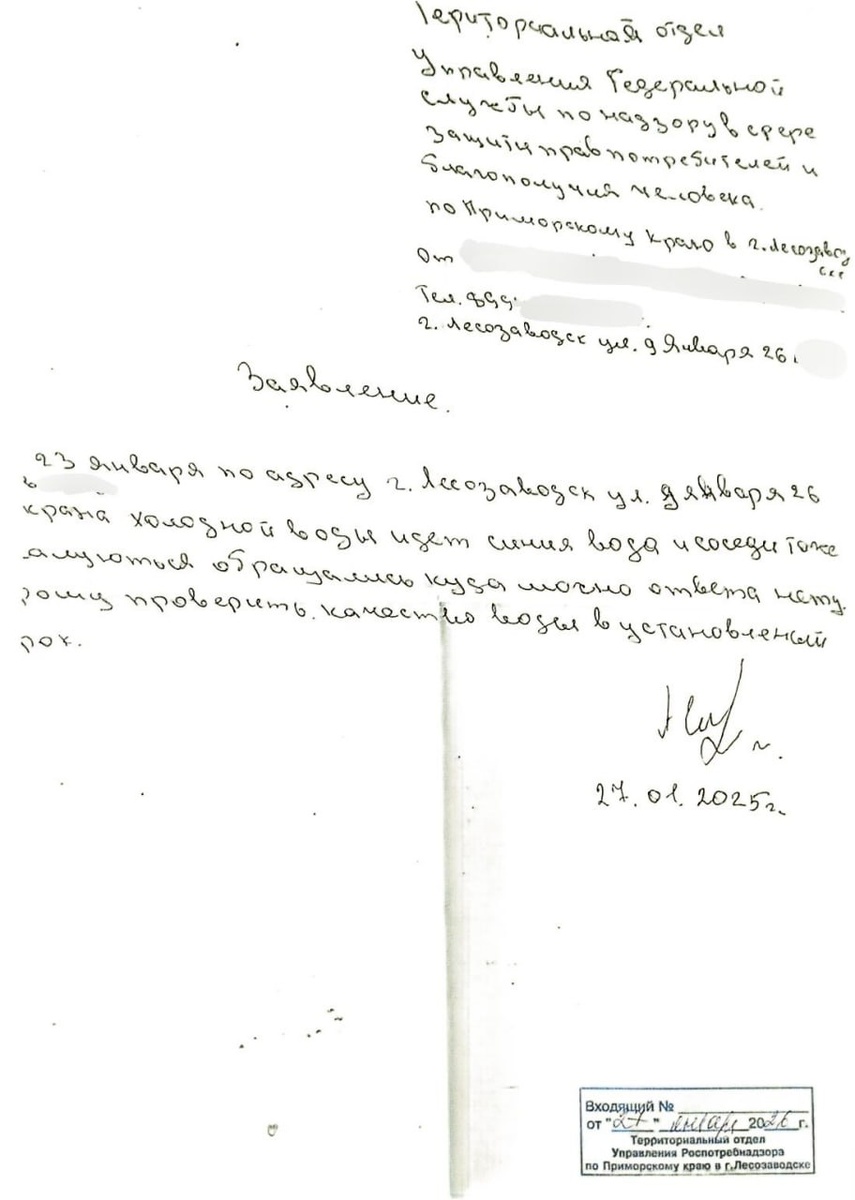 Териториальной отдел
Управления Федеральной
службы по надзору в сфере
защити прав потребителей и
благополучия человека
по Приморскому краю в г. Лесозаводске
От
Тел. 899
г. Лесозаводск ул. 9 Января 26
Заявление.
23 января по адресу г. Лесозаводск ул. 9 января 26
крана холодной воды идет синия вода и соседи тоже
алуються обращались куда можно ответа нету.
рошу проверить. качество воды в установленый
рок.
27.01.2025г.
Входящий №
от "27" января 2026 г.
Территориальный отдел
Управления Роспотребнадзора
по Приморскому краю в г.Лесозаводске